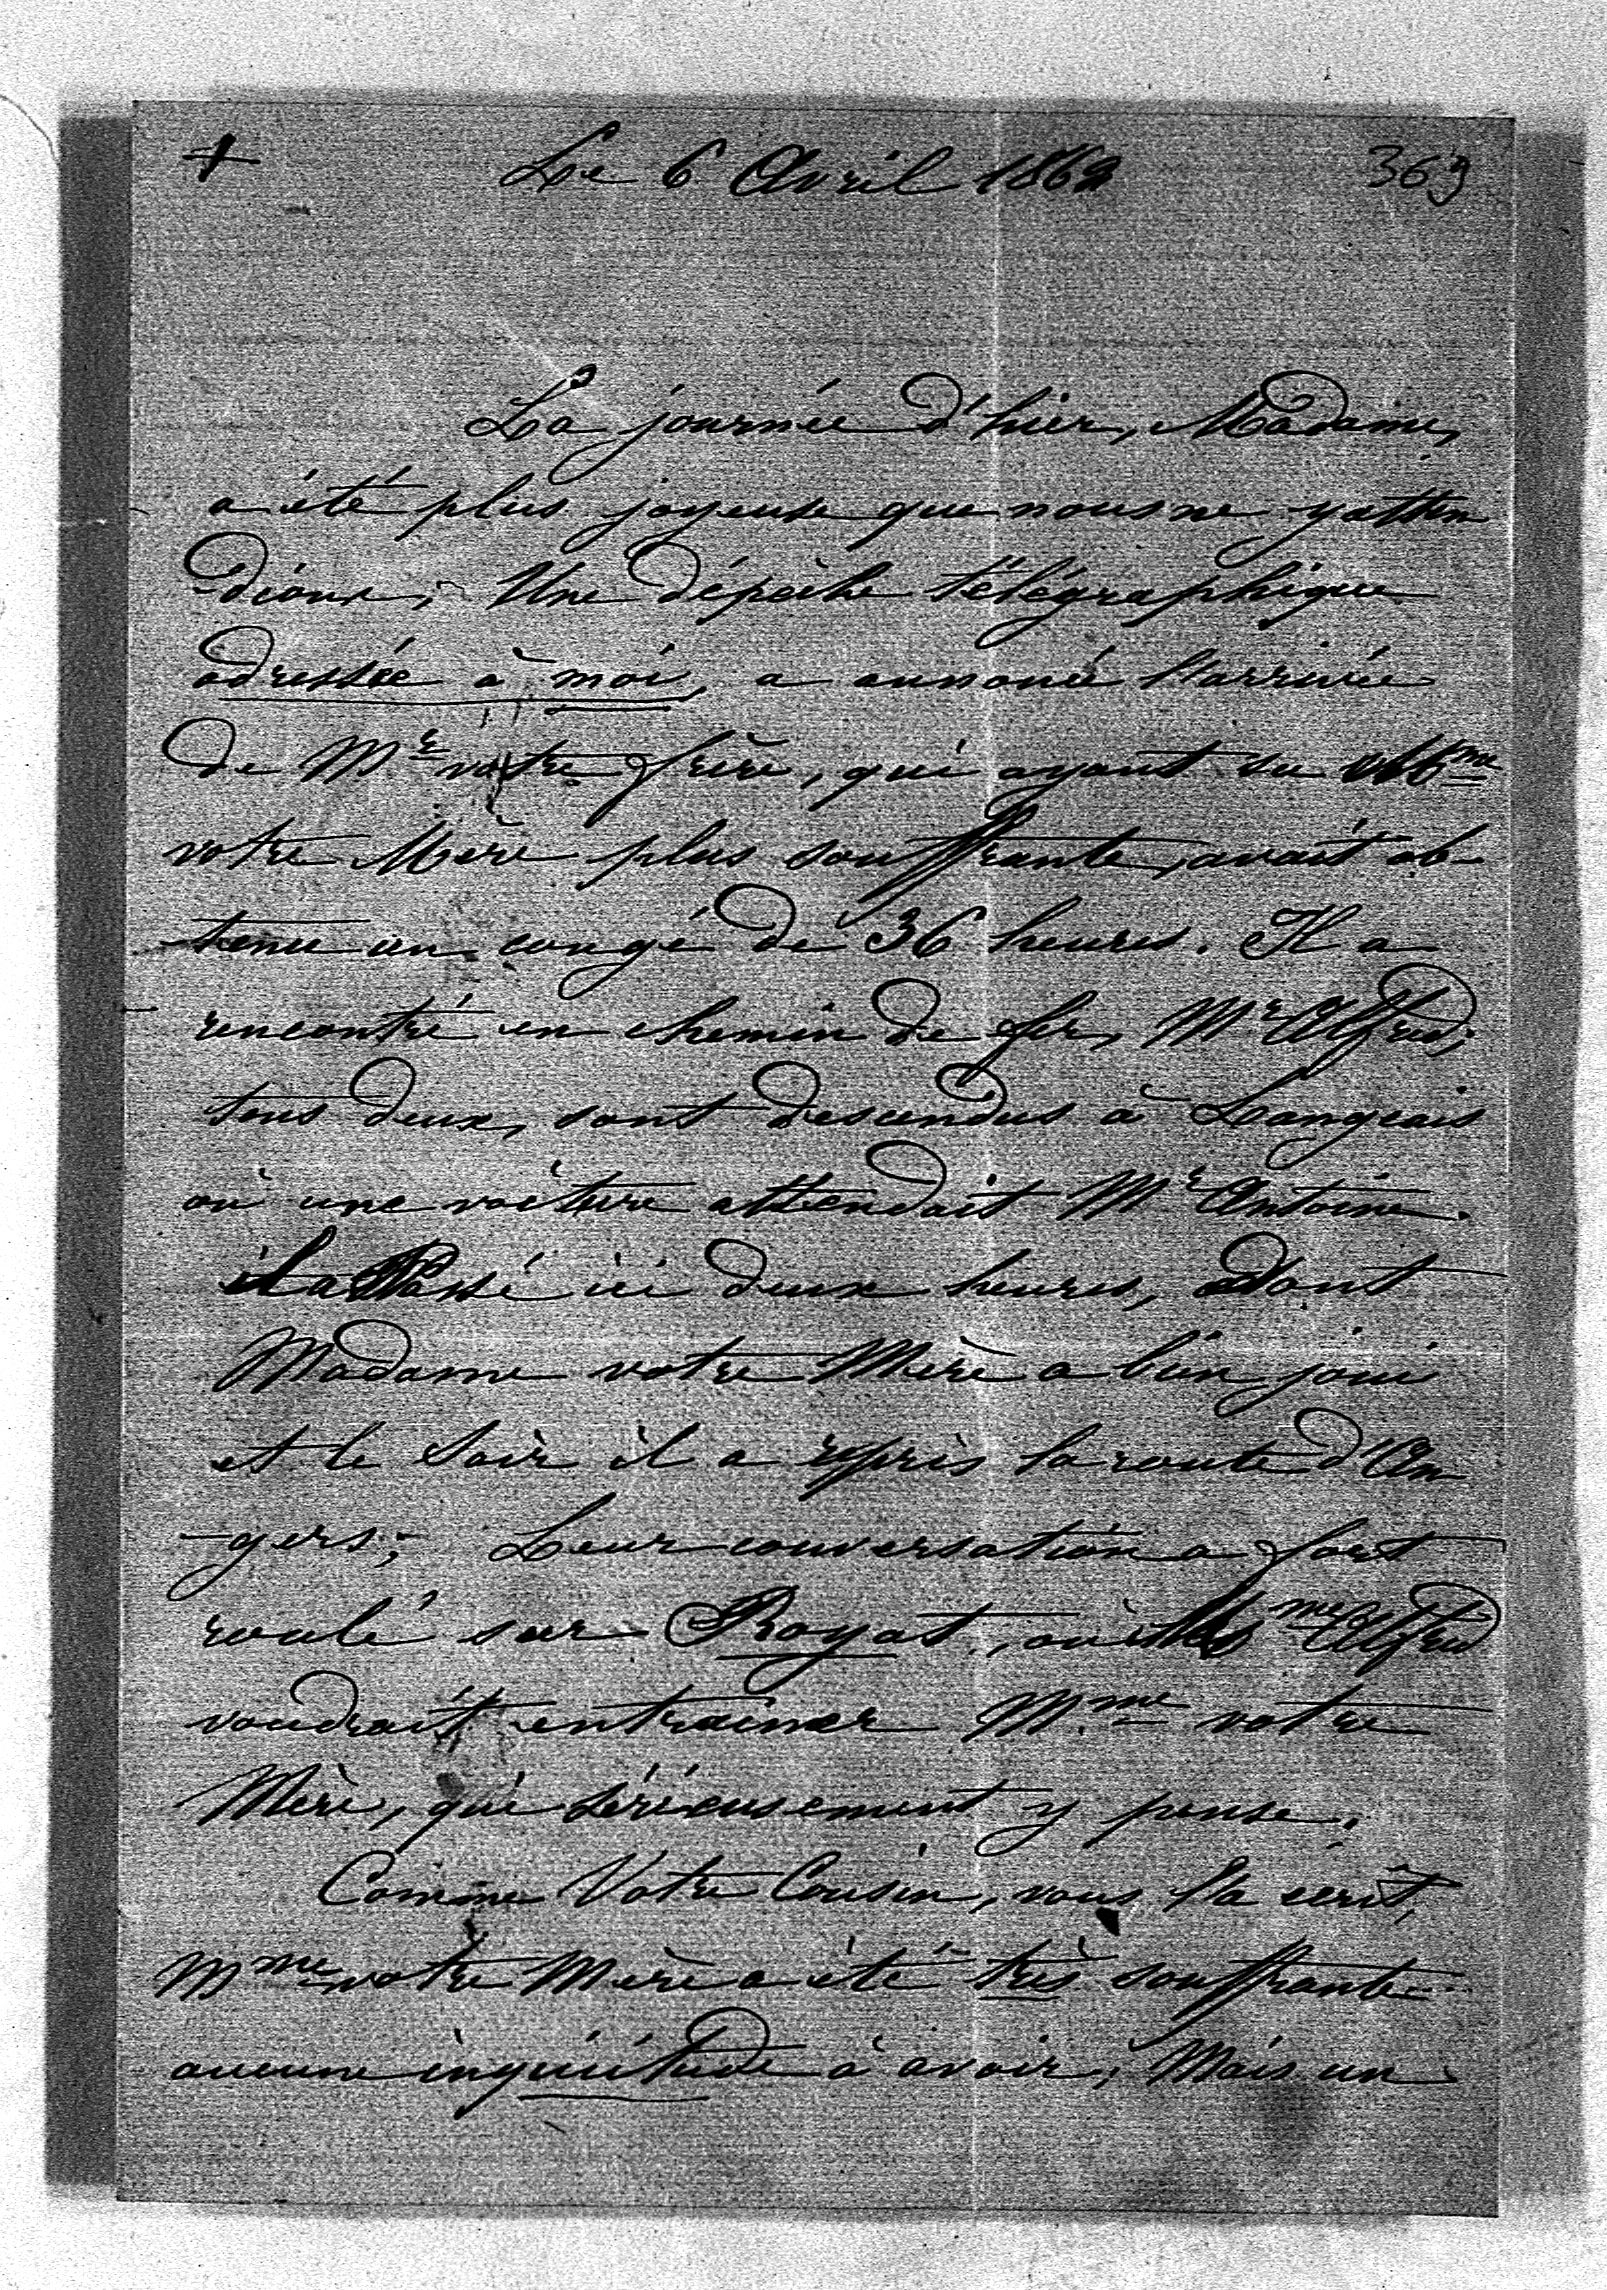 + Le 6 Avril 1862 369
La journée d'hier, Madame,
a été plus joyeuse que nous ne y atten
-dions; Une dépêche télégraphique
adressée à moi, a annoncé l'arrivée
de Mr votre frère, qui ayant su Mme
votre Mère plus souffrante, avait ob-
tenu un congé de 36 heures. Il a
rencontré en chemin de fer, Mr Alfred;
tous deux, sont descendus à Langeais
où une voiture attendait Mr Antoine.
il a Passé ici deux heures, dont
Madame votre Mère a bien joui
et le Soir il a repris la route d'An
-gers; Leur conversation a fort
roulé sur Royat, où Mme Alfred
voudrait entrainer Mme votre
Mère, qui sérieusement y pense.
Comme Votre Cousin, vous l'a écrit,
Mme votre Mère a été très souffrante
aucune inquiétude à avoir; Mais un